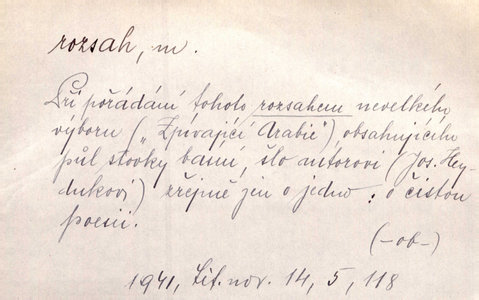 rozsah, m.
Při pořádání tohoto rozsahem nevelkého
výboru („Zpívající Arabie“), obsahujícího
půl stovky básní, šlo autorovi (Jos. Hey-
dukovi) zřejmě jen o jedno: o čistou
poesii.
(-ob-)
1941, Lit. nov. 14, 5, 118